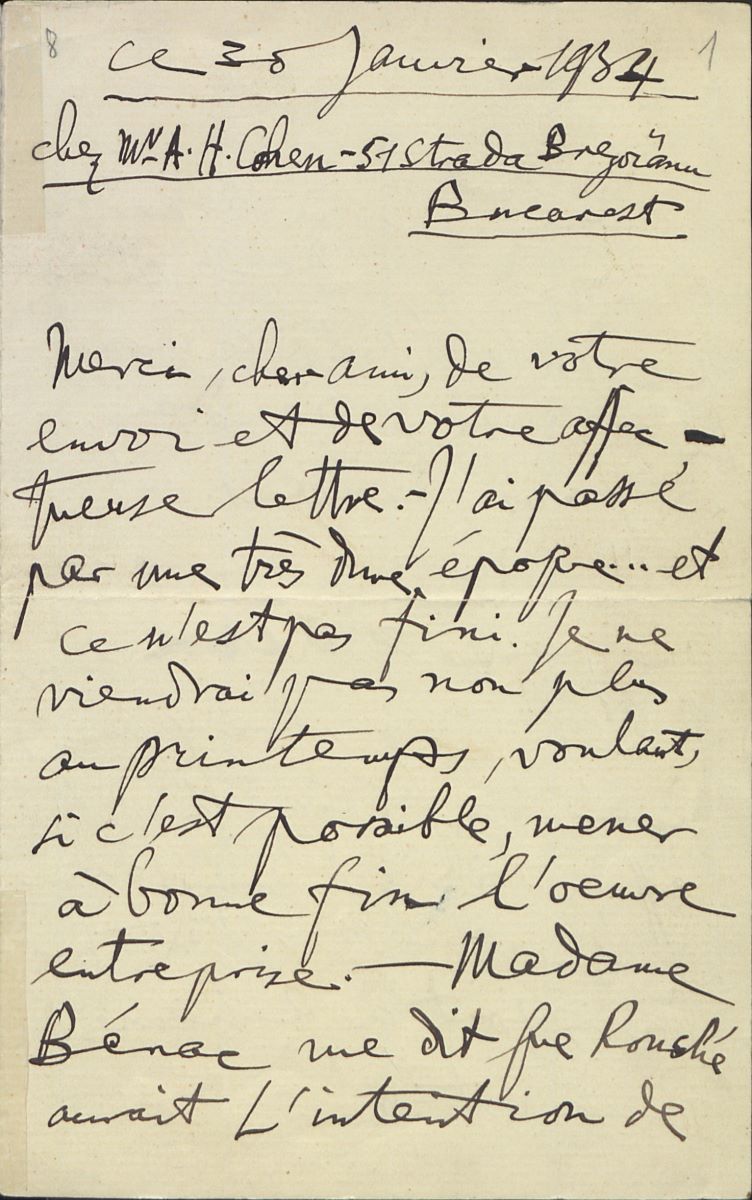 8 1
ce 30 Janvier 1934
chez Mr A. H. Cohen - 51 Strada Brezoïanu
Bucarest
Merci, cher ami, de votre
envoi et de votre affec-
tueuse lettre. - J'ai passé
par une très dure époque... et
ce n'est pas fini. Je ne
viendrai pas non plus
au printemps, voulant,
si c'est possible, mener
à bonne fin l'oeuvre
entreprise. - Madame
Bénac me dit que Rouché
aurait L'intention de